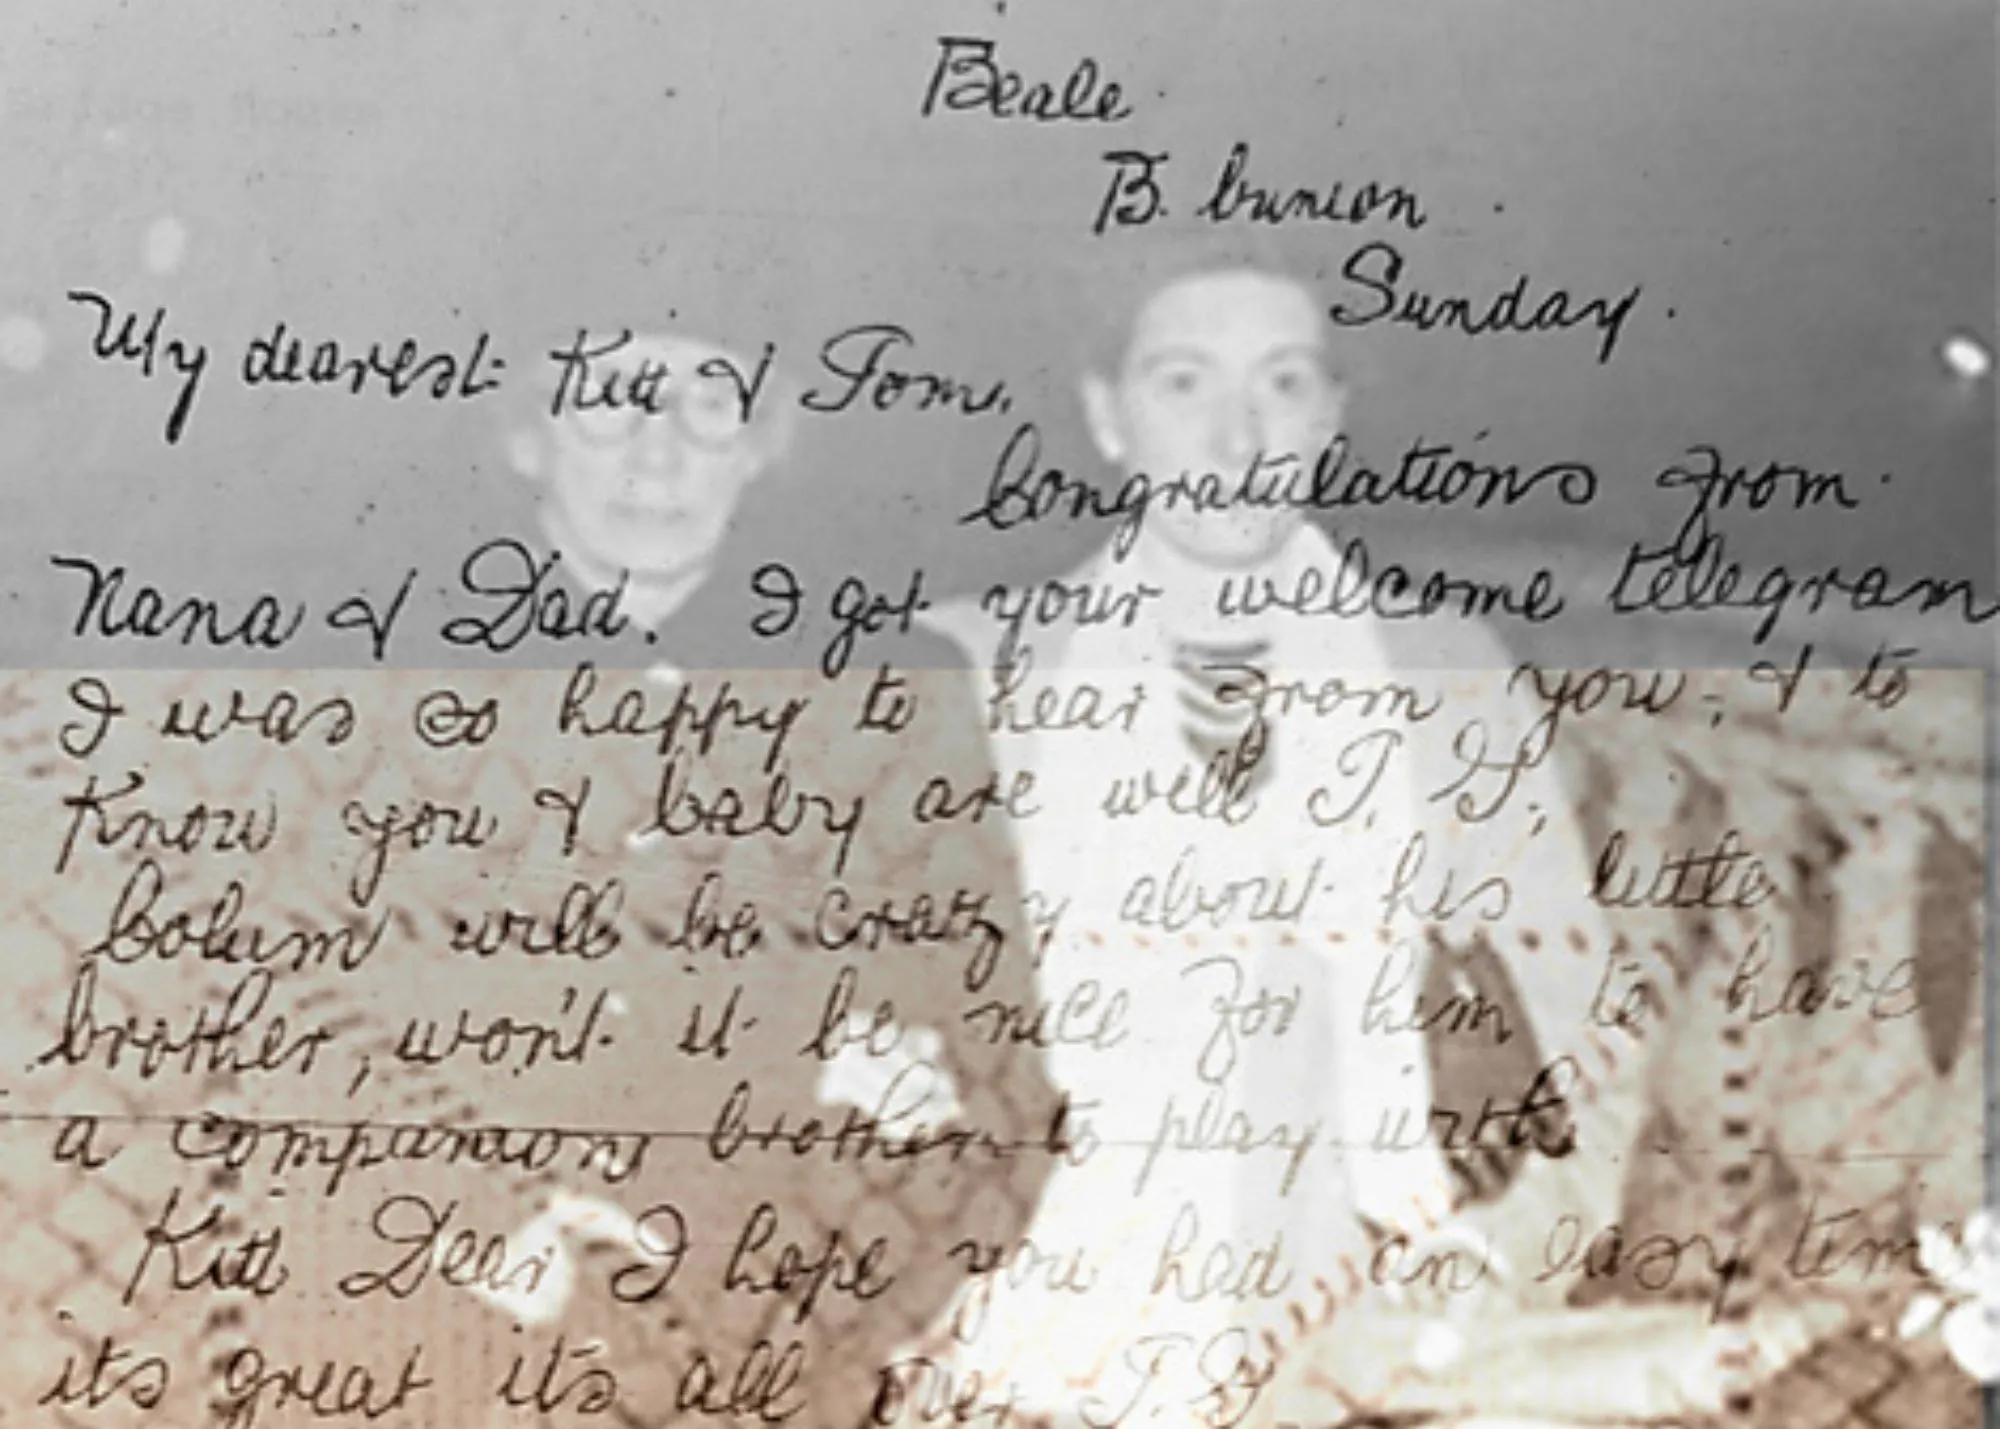 Beale
B. bunion
Sunday.
My dearest Kitt & Tom,
Congratulations from
Nana & Dad. I got your welcome telegram
I was so happy to hear from you, & to
Know you & baby are well T. G,
Colum will be crazy about his little
brother, won't it be nice for him to have
a companion brother to play with
Kitt Dear I hope you had an easy time
its great its all over T. G